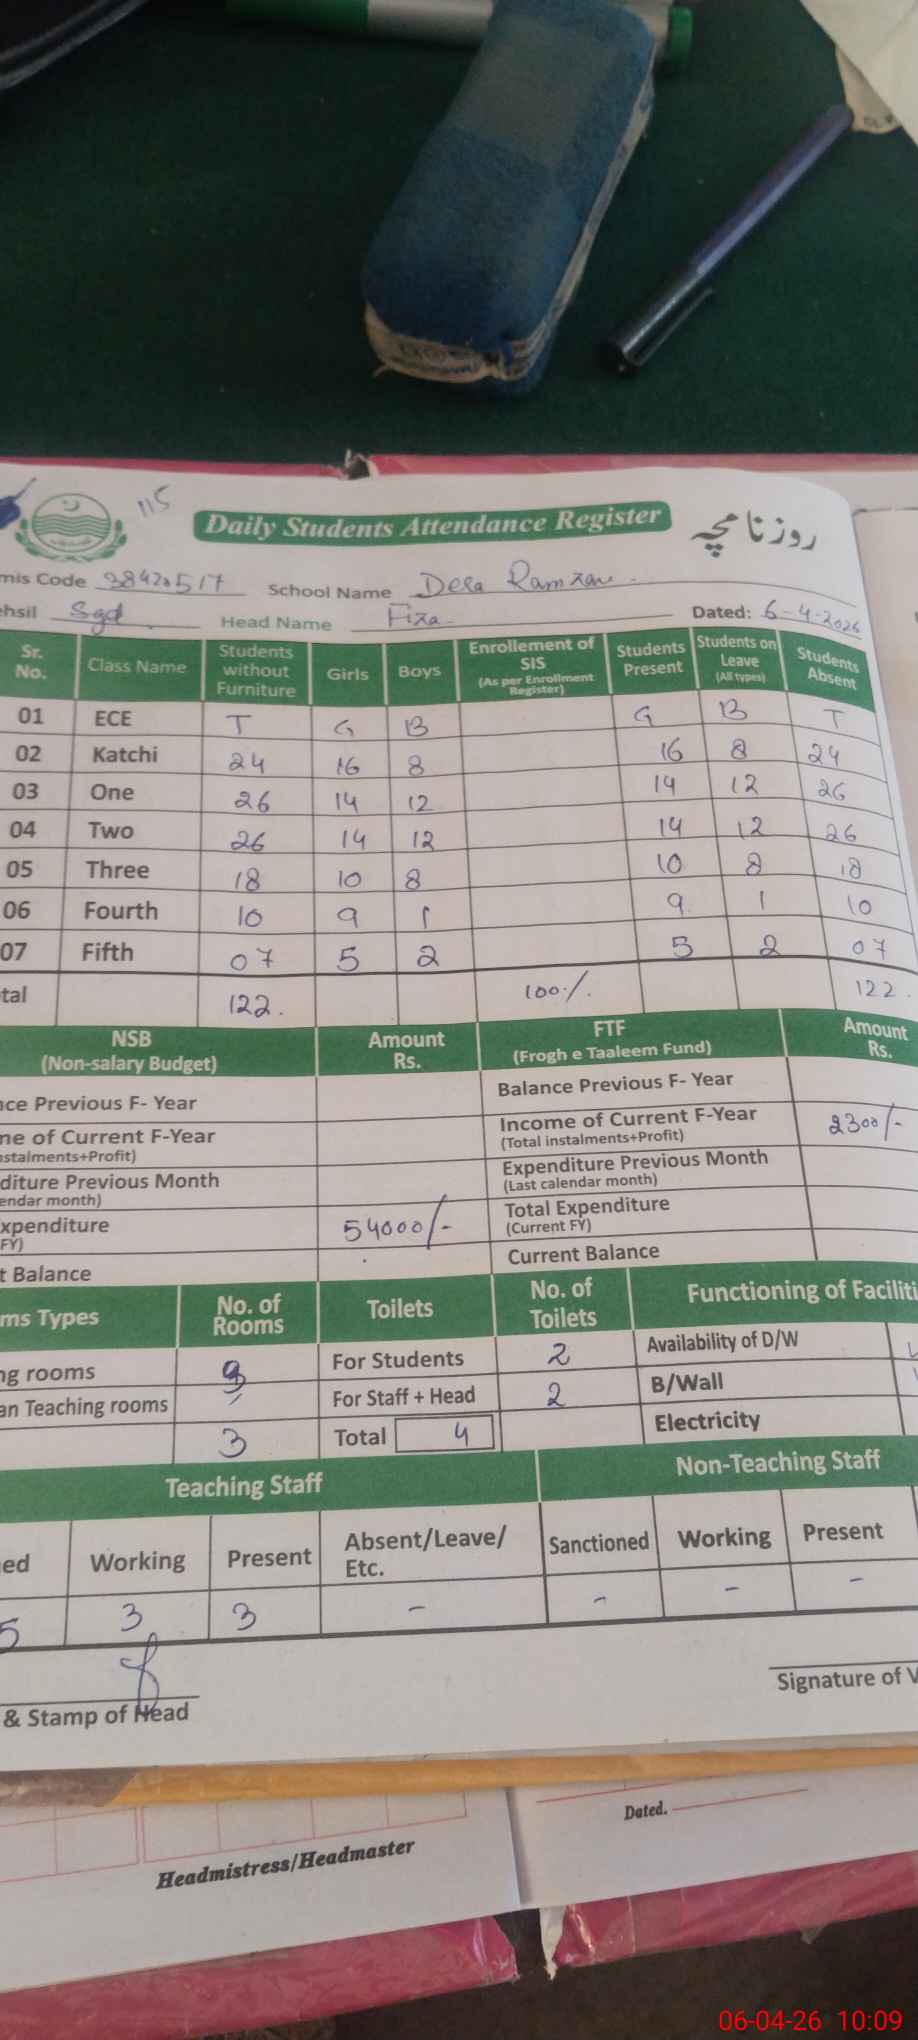 115
Daily Students Attendance Register روزنامچہ
mis Code 38420517 School Name Dera Ramzan
ehsil Sgd Head Name Fiza Dated: 6-4-2026
Sr. No. Class Name Students without Furniture Girls Boys Enrollement of SIS (As per Enrollment Register) Students Present Students on Leave (All types) Students Absent
01 ECE T G B G B T
02 Katchi 24 16 8 16 8 24
03 One 26 14 12 14 12 26
04 Two 26 14 12 14 12 26
05 Three 18 10 8 10 8 18
06 Fourth 10 9 1 9 1 10
07 Fifth 07 5 2 5 2 07
tal 122. 100./. 122.
NSB (Non-salary Budget) Amount Rs. FTF (Frogh e Taaleem Fund) Amount Rs.
nce Previous F- Year Balance Previous F- Year
me of Current F-Year Income of Current F-Year 2300/-
nstalments+Profit) (Total instalments+Profit)
diture Previous Month Expenditure Previous Month
endar month) (Last calendar month)
xpenditure 54000/- Total Expenditure
FY) (Current FY)
t Balance Current Balance
ms Types No. of Rooms Toilets No. of Toilets Functioning of Faciliti
ng rooms 3 For Students 2 Availability of D/W
an Teaching rooms For Staff + Head 2 B/Wall
3 Total 4 Electricity
Teaching Staff Non-Teaching Staff
ed Working Present Absent/Leave/ Etc. Sanctioned Working Present
5 3 3 - - - -
& Stamp of Head Signature of V
Dated.
Headmistress/Headmaster
06-04-26 10:09